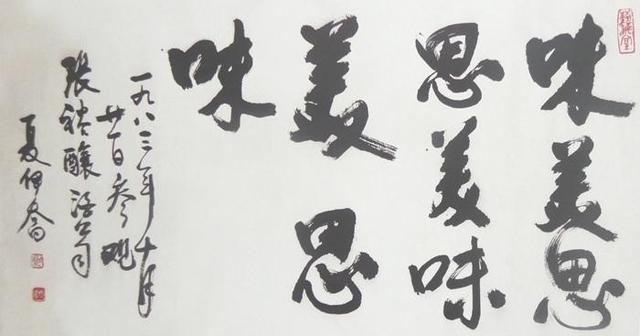 味美思
思美味
美思
味
一九八三年十月
廿一日参观
张裕釀酒公司
夏伊喬